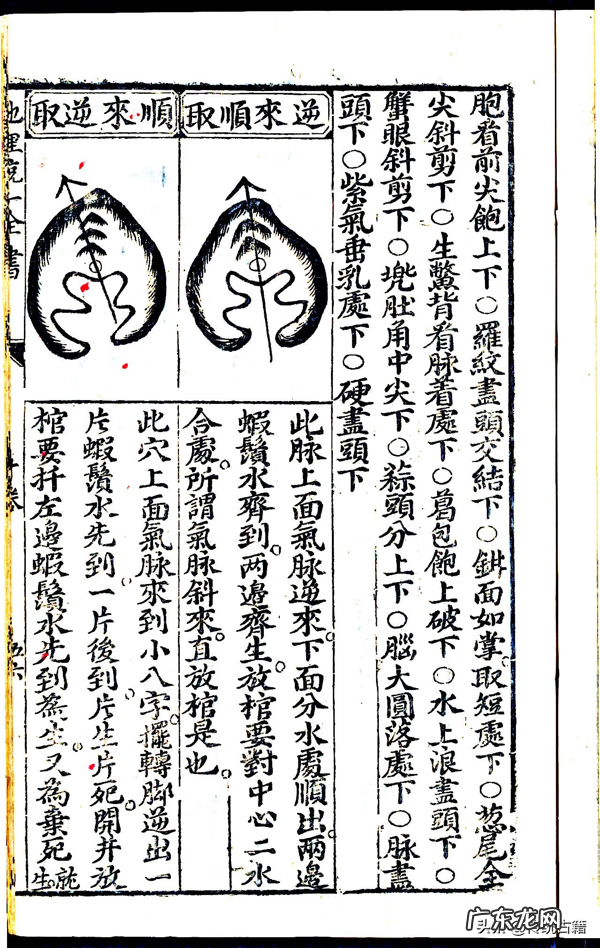 胞看前尖飽上下○羅紋盡頭交結下○鉗面如掌取短處下○葱尾全
尖斜剪下○生鱉背看脉着處下○葛包飽上破下○水上浪盡頭下○
蟹眼斜剪下○兠肚角中尖下○蒜頭分上下○腦大圓落處下○脉盡
頭下○紫氣垂乳處下○硬盡頭下
逆來順取
此脉上面氣脉逆來下面分水處順出兩邊
蝦鬚水齊到兩邊齊生放棺要對中心二水
合處所謂氣脉斜來直放棺是也
順來逆取
此穴上面氣脉來到小八字擺轉脚逆出一
片蝦鬚水先到一片後到片生片死開井放
棺要扦左邊蝦鬚水先到為生又為棄死就生
地理統一全書
卷
五六
广东龙网